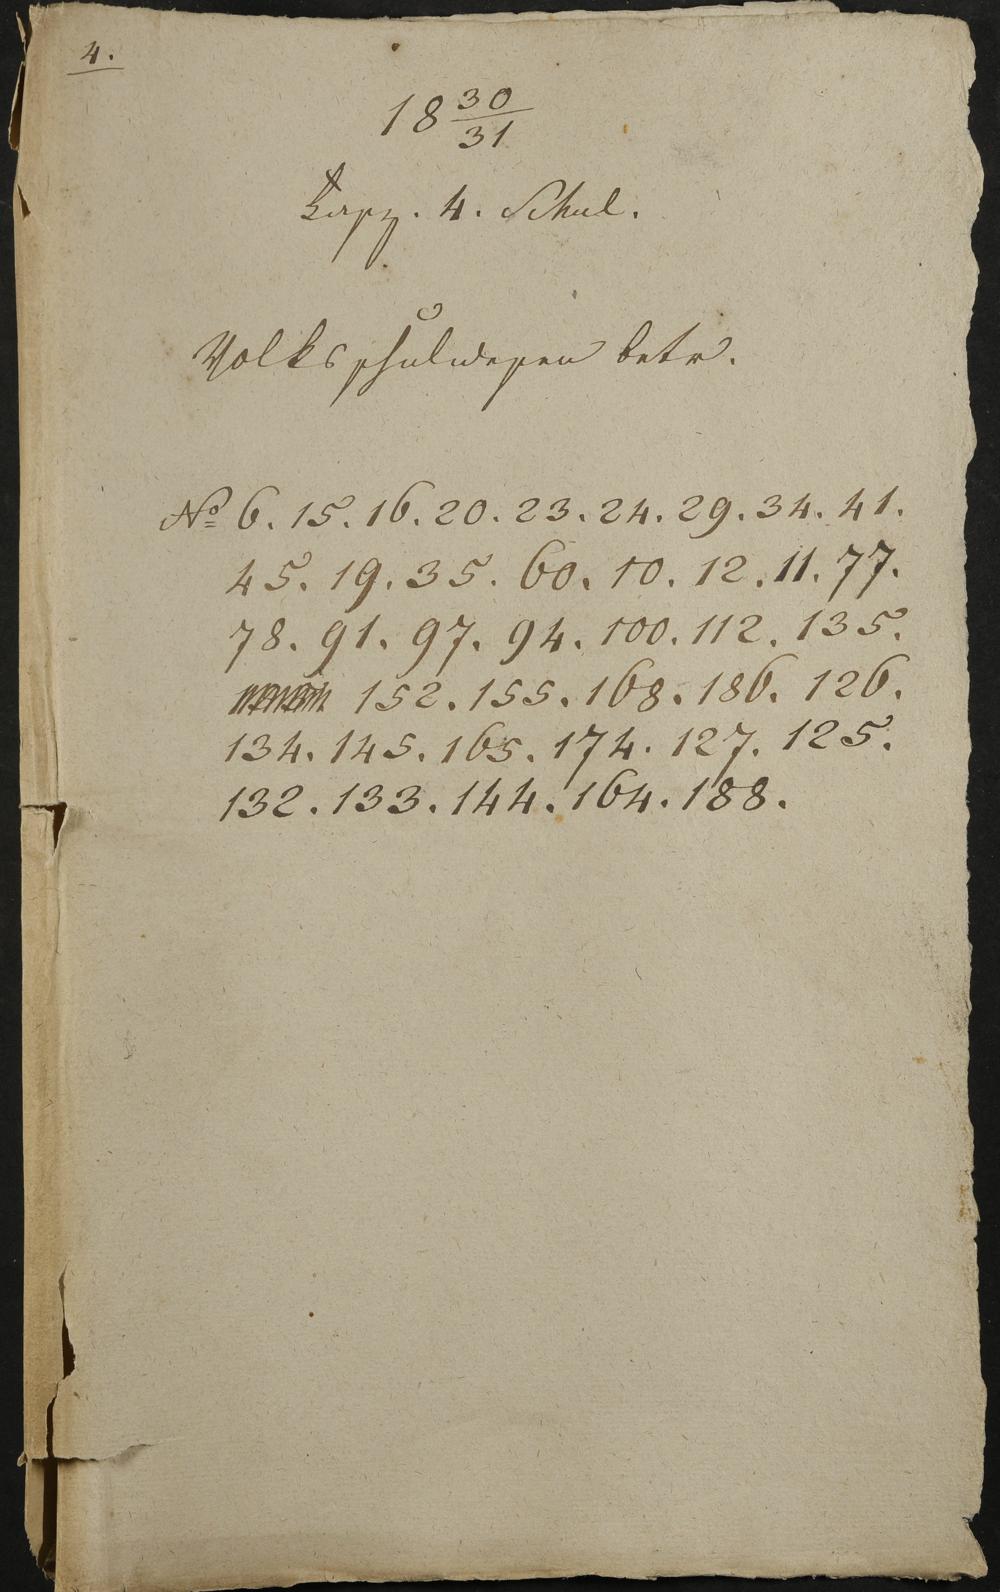 4.
18 30/31
Fasz. 4. Schul.
Volksschulwesen betr.
No 6. 15. 16. 20. 23. 24. 29. 34. 41.
45. 19. 35. 60. 10. 12. 11. 77.
78. 91. 97. 94. 100. 112. 135.
152. 155. 168. 186. 126.
134. 145. 165. 174. 127. 125.
132. 133. 144. 164. 188.